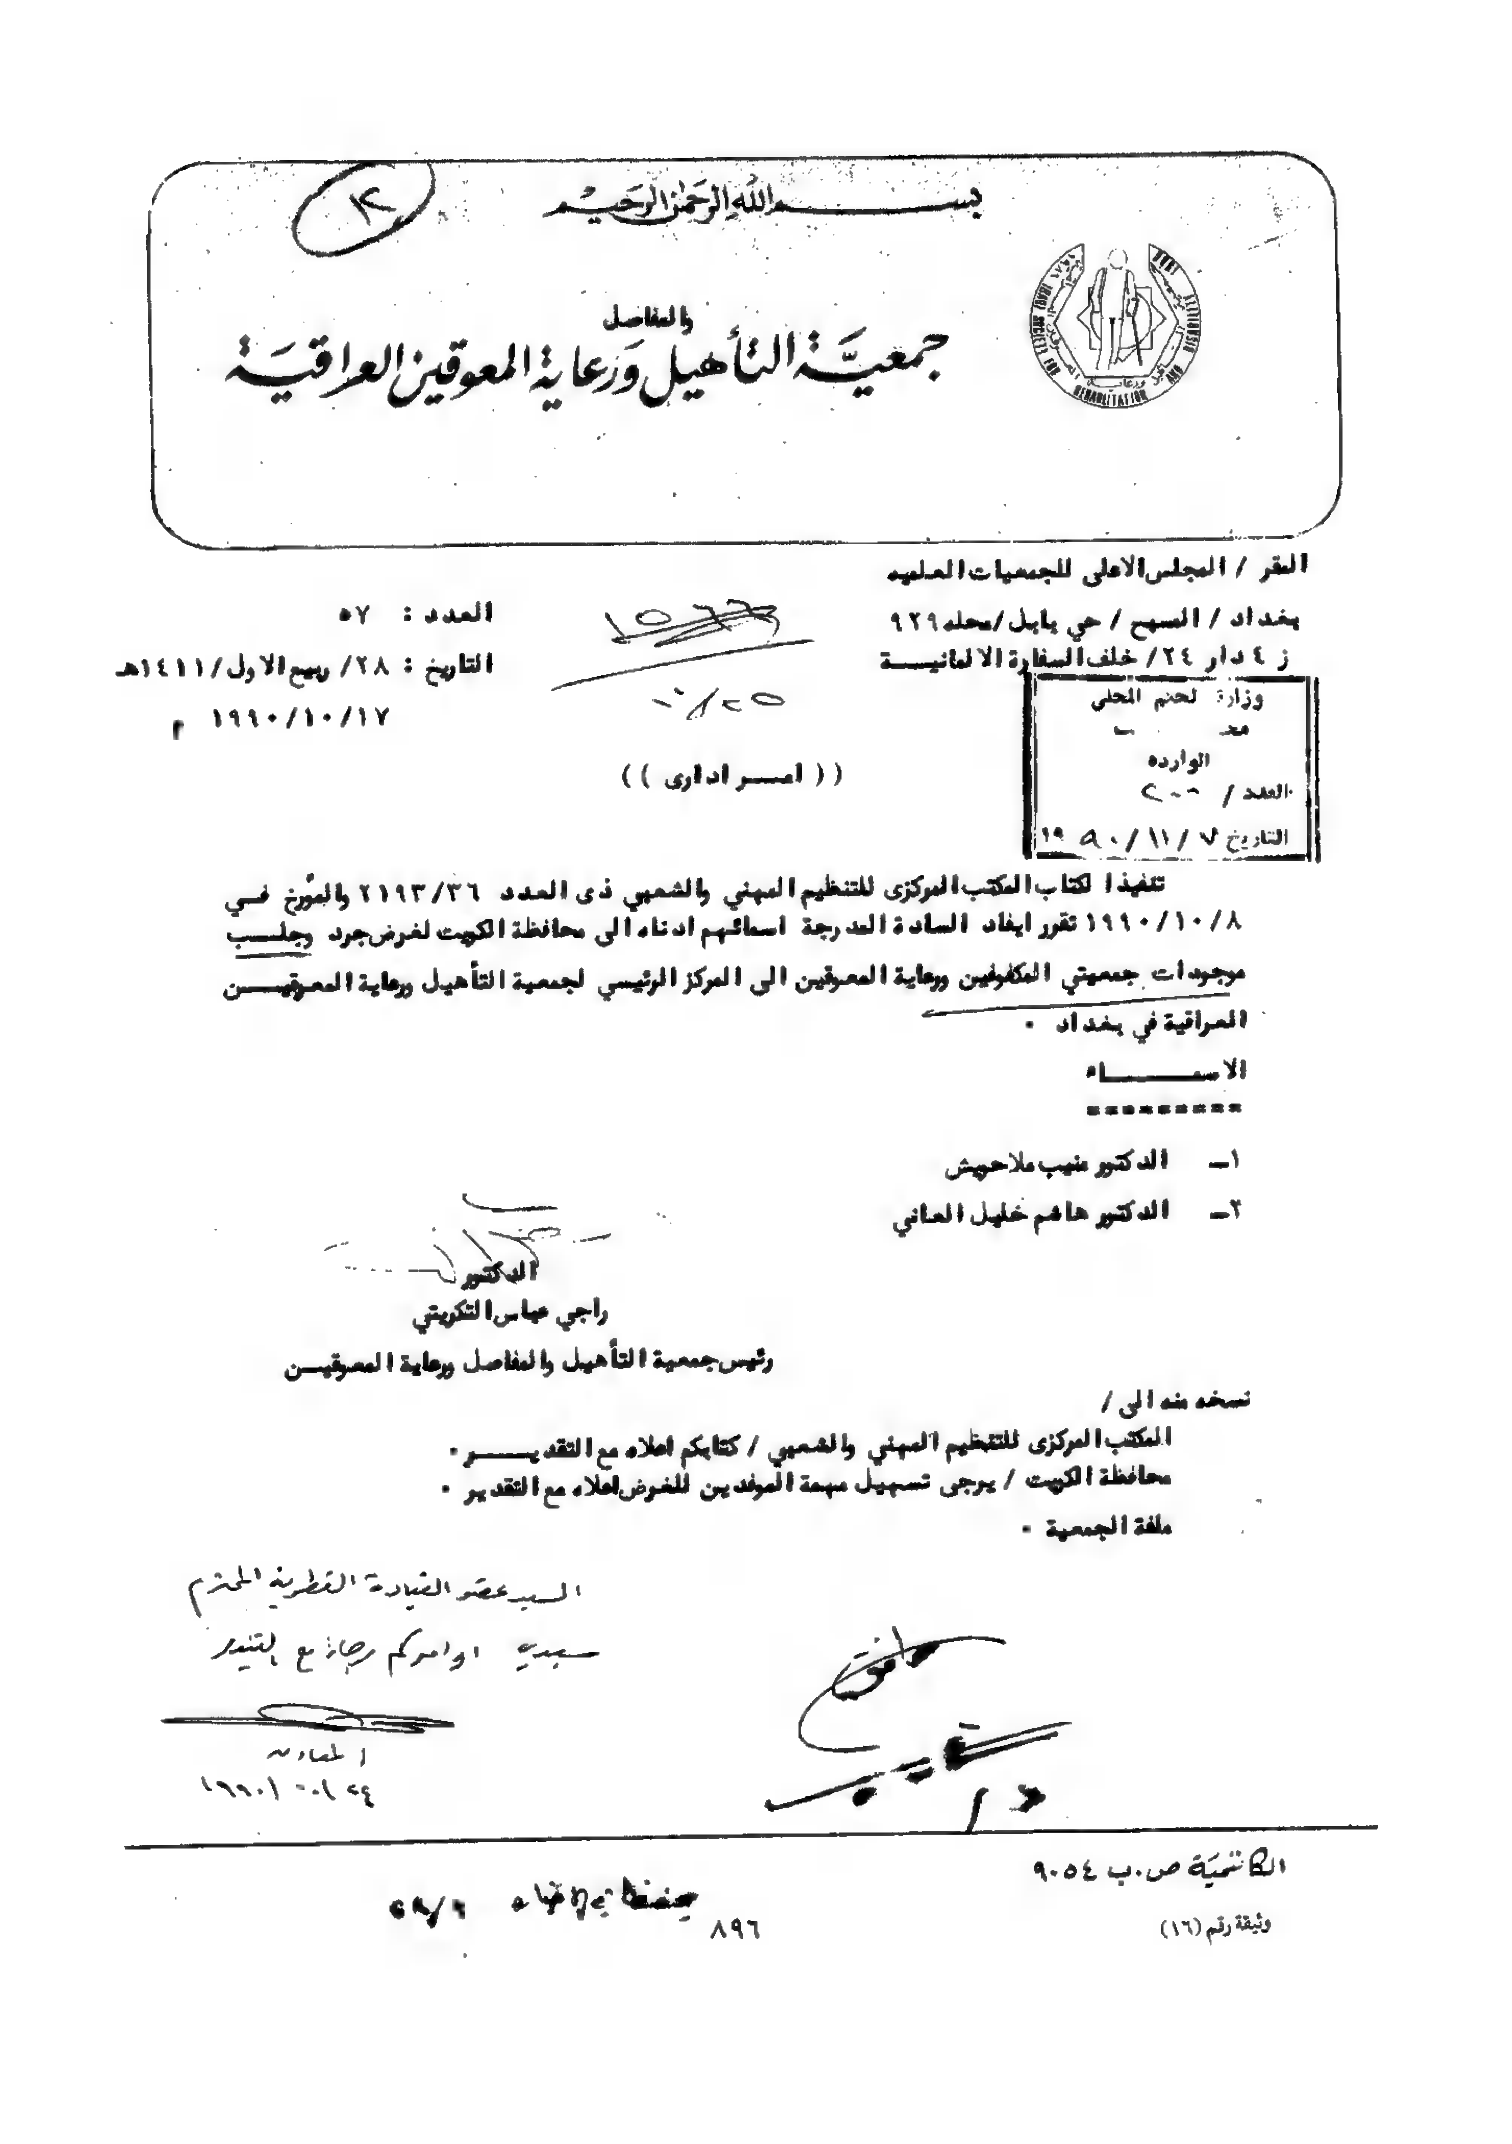 بسم الله الرحمن الرحيم
والمفاصل
جمعية التأهيل ورعاية المعوقين العراقية
IRAQI SOCIETY FOR REHABILITATION AND
المقر / المجلس الاعلى للجمعيات العلميه
بغداد / المسبح / حي بابل /محله ٩٢٩
ز ٤ دار ٢٤/ خلف السفارة الالمانيـــة
العدد : ٥٧
التاريخ : ٢٨/ ربيع الاول/١٤١١هـ
١٩٩٠/١٠/١٧ م
وزارة لحكم المحلي
الوارده
العدد / ٢٠٠
التاريخ ٧ / ١١ / ٩٠ ١٩
(( امـــر ادارى ))
تنفيذا لكتاب المكتب المركزى للتنظيم المهني والشعبي ذى العدد ٢١٩٣/٣٦ والمؤرخ فــي
١٩٩٠/١٠/٨ تقرر ايفاد السادة المدرجة اسمائهم ادناه الى محافظة الكويت لغرض جرد وجلـــب
موجودات جمعيتي المكفوفين ورعاية المعوقين الى المركز الرئيسي لجمعية التأهيل ورعاية المعوقيـــن
العراقية في بغداد ٠
الاسمـــــــاء
=========
١ــ الدكتور منيب ملاحويش
٢ــ الدكتور هاشم خليل العاني
الدكتور
راجي عباس التكريتي
رئيس جمعية التأهيل والمفاصل ورعاية المعوقيـــن
نسخه منه الى /
المكتب المركزى للتنظيم المهني والشعبي / كتابكم اعلاه مع التقديـــــر ٠
محافظة الكويت / يرجى تسهيل مهمة الموفدين للغرض اعلاه مع التقدير ٠
ملفة الجمعية ٠
السيد عضو القيادة القطرية المحترم
سيدي اوامركم رجاءً مع التقدير
موافق
ص.ب ٩٠٥٤
٨٩٦
وثيقة رقم (١٦)